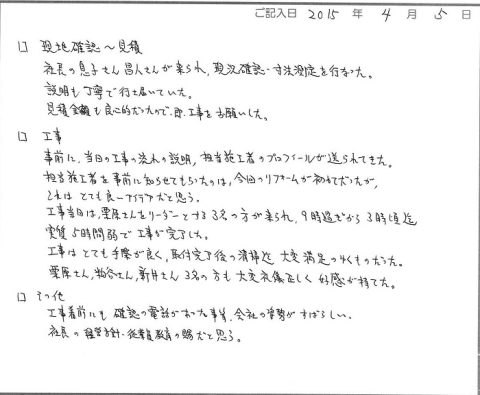 ご記入日 2015 年 4 月 5 日
□ 現地確認〜見積
社長の息子さん昌人さんが来られ、現況確認・寸法測定を行なった。
説明も丁寧で行き届いていた。
見積金額も良心的だったので、即、工事をお願いした。
□ 工事
事前に、当日の工事の流れの説明、担当施工者のプロフィールが送られてきた。
担当施工者を事前に知らせてもらったのは、今回のリフォームが初めてだったが、
これは とても良いアイデアだと思う。
工事当日は、栗原さんをリーダーとする3名の方が来られ、9時過ぎから3時頃迄
実質5時間弱で工事が完了した。
工事は とても手際が良く、取付完了後の清掃迄 大変満足のゆくものだった。
栗原さん、粕谷さん、新井さん 3名の方も 大変礼儀正しく 好感が持てた。
□ その他
工事着前にも 確認の電話があった事等、会社の姿勢がすばらしい。
社長の 経営方針・従業員教育の賜だと思う。